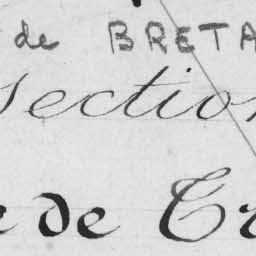 de BRETA
section
e de Tr